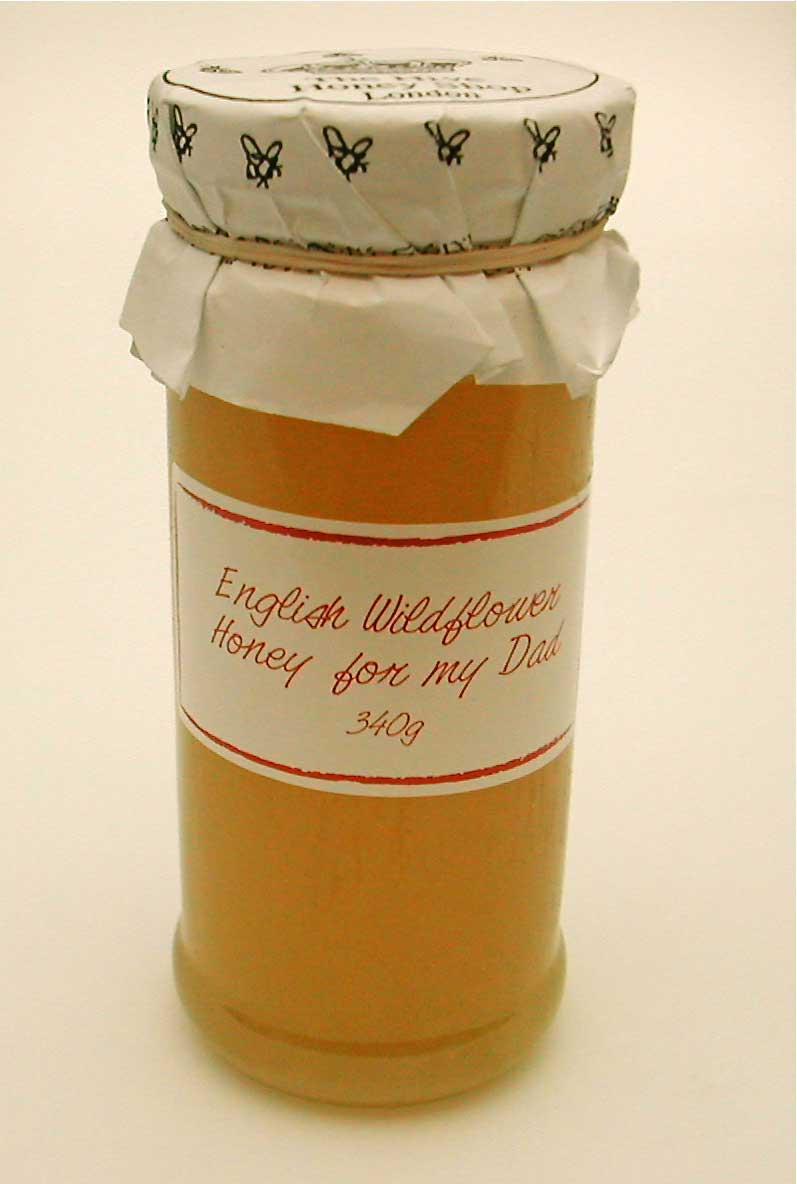 The Hive
Honey Shop
London
English Wildflower
Honey for my Dad
340g